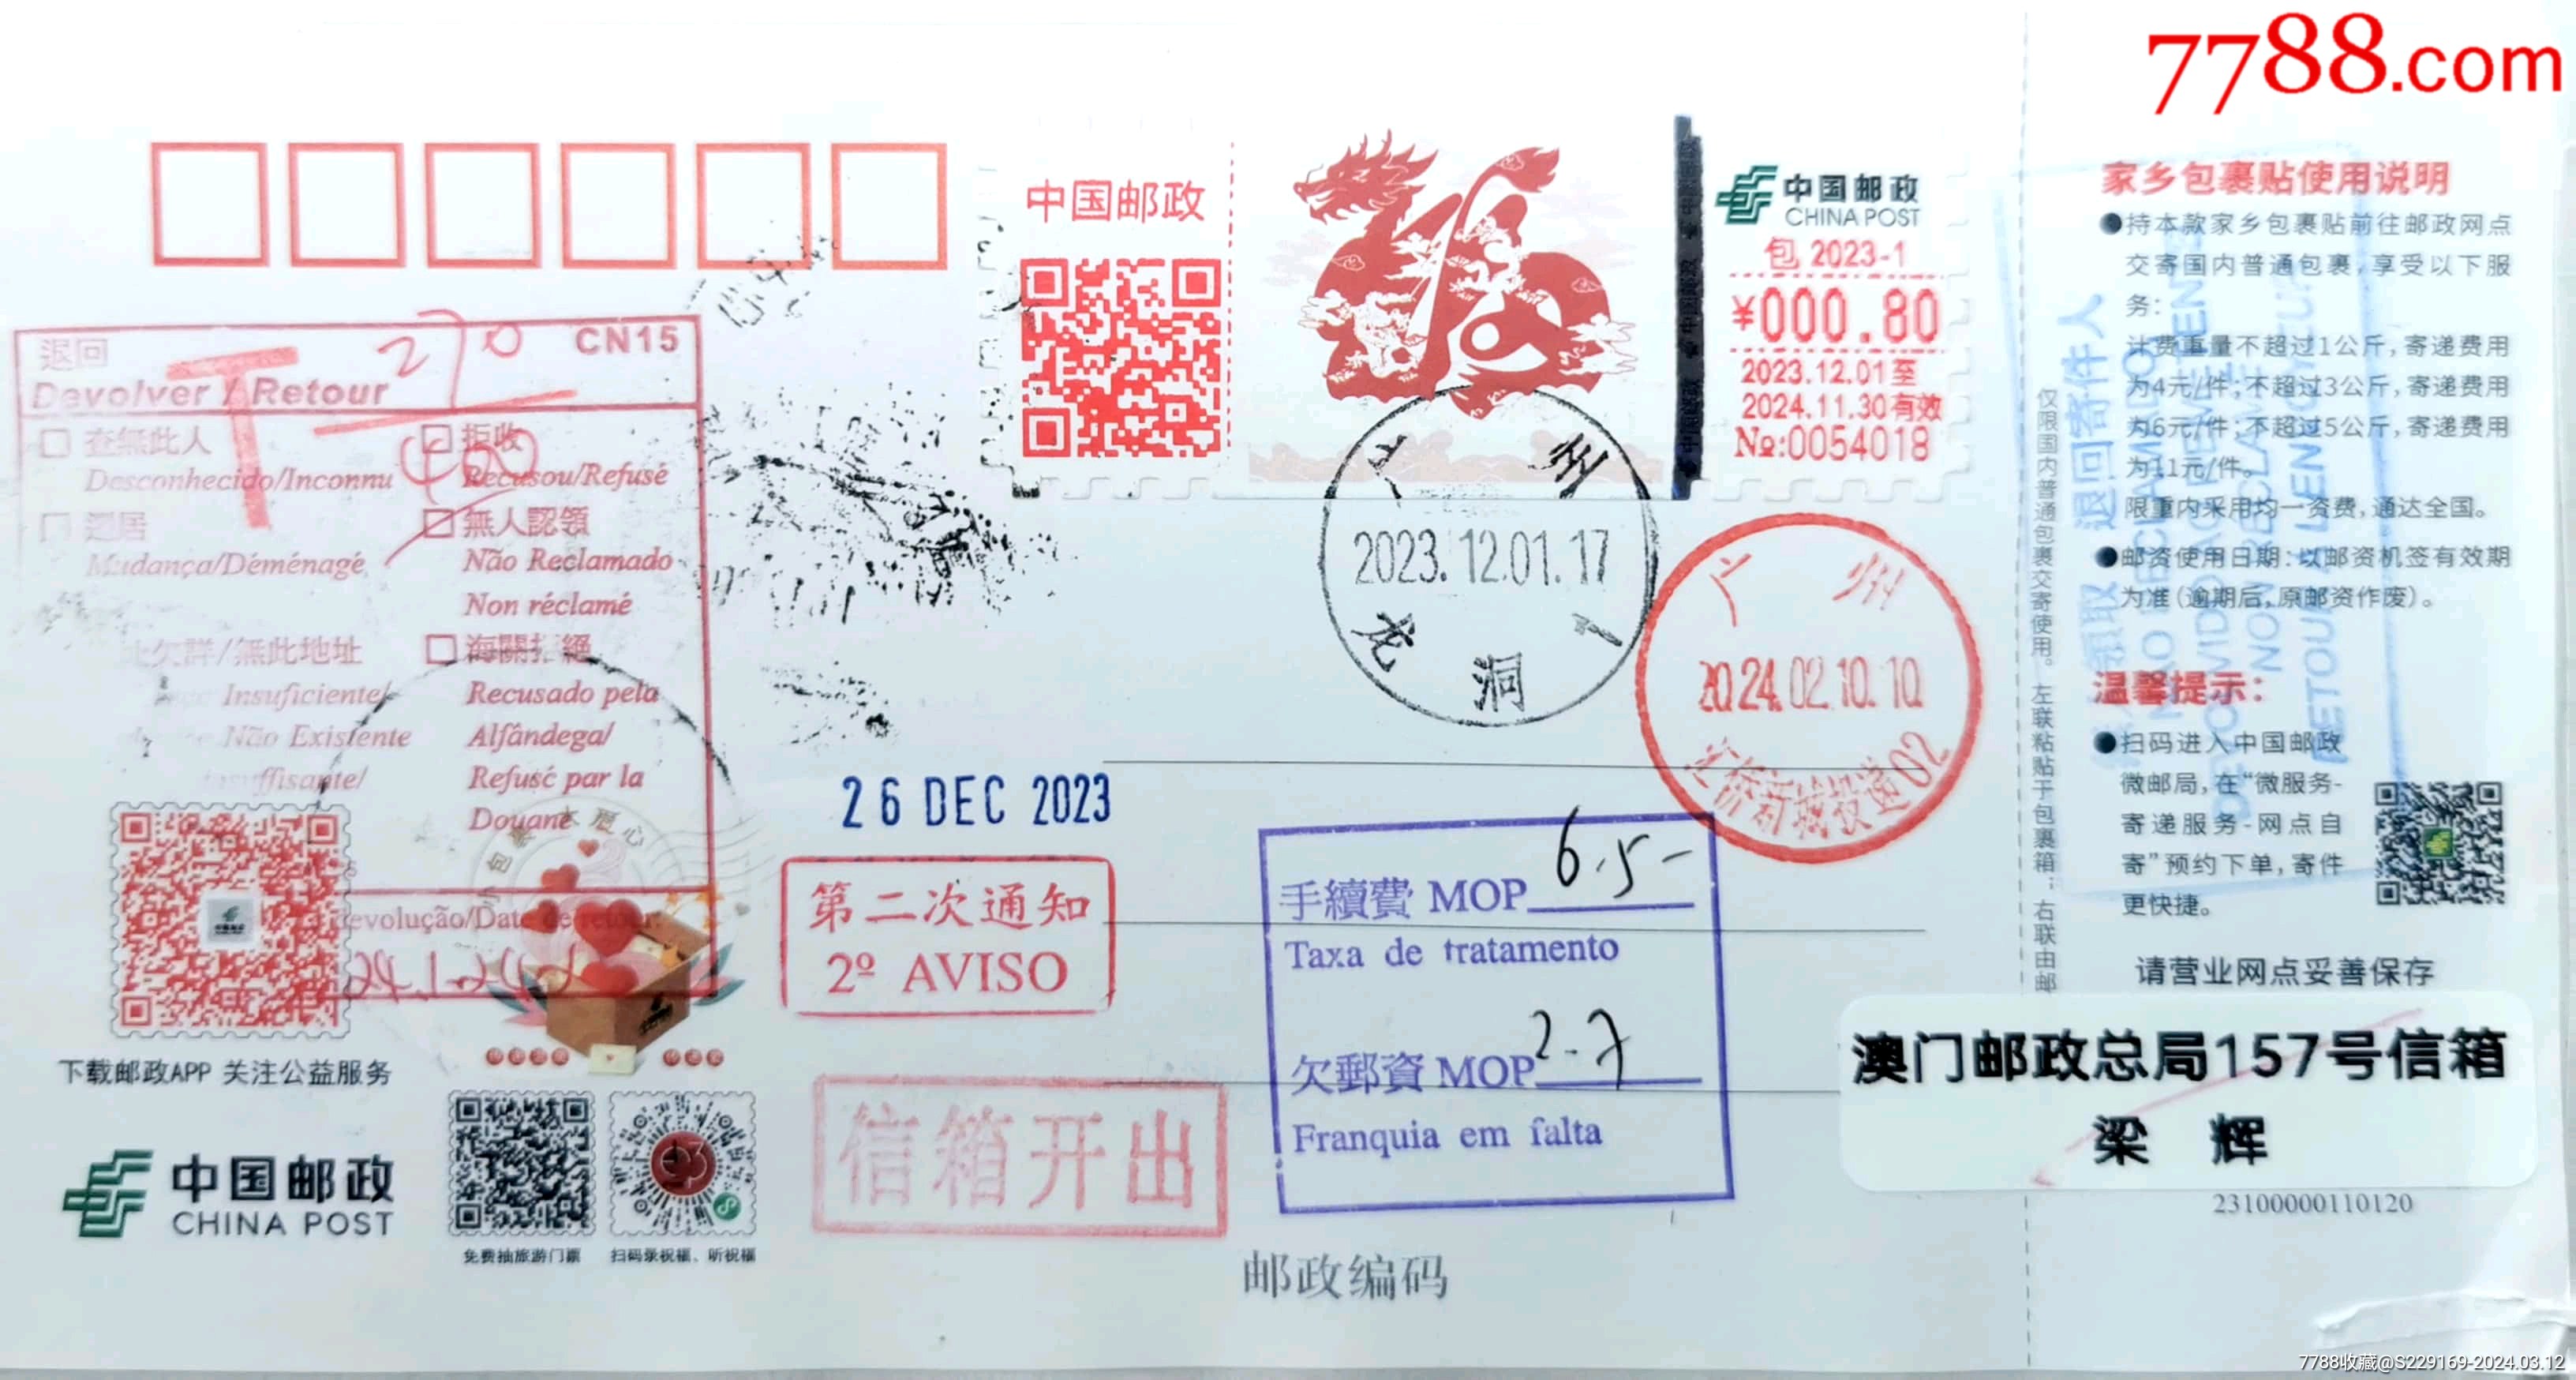 7788.com
中国邮政
福
中国邮政
CHINA POST
包 2023-1
¥000.80
2023.12.01至
2024.11.30有效
№:0054018
广 州
2023.12.01.17
龙 洞 1
广 州
2024.02.10.10
汇侨新城投递02
退回
CN15
Devolver / Retour
T
270
400
查無此人
Desconhecido/Inconnu
拒收
Recusou/Refusé
遷居
Mudança/Déménagé
無人認領
Não Reclamado
Non réclamé
址欠詳/無此地址
Insuficiente/
Não Existente
海關拒絕
Recusado pela
Alfândega/
Refusé par la
Douane
evolução/Date de retour:
26 DEC 2023
第二次通知
2º AVISO
信箱开出
手續費 MOP 6.5-
Taxa de tratamento
欠郵資 MOP 2.7
Franquia em falta
下载邮政APP 关注公益服务
中国邮政
CHINA POST
免费抽旅游门票
扫码录祝福、听祝福
邮政编码
仅限国内普通包裹交寄使用。左联粘贴于包裹箱；右联由邮
家乡包裹贴使用说明
●持本款家乡包裹贴前往邮政网点
交寄国内普通包裹，享受以下服
务：
计费重量不超过1公斤，寄递费用
为4元/件；不超过3公斤，寄递费用
为6元/件；不超过5公斤，寄递费用
为11元/件。
限重内采用均一资费，通达全国。
●邮资使用日期：以邮资机签有效期
为准（逾期后，原邮资作废）。
温馨提示：
●扫码进入中国邮政
微邮局，在“微服务-
寄递服务-网点自
寄”预约下单，寄件
更快捷。
请营业网点妥善保存
退回寄件人
澳门邮政总局157号信箱
梁 辉
23100000110120
7788收藏@S229169-2024.03.12